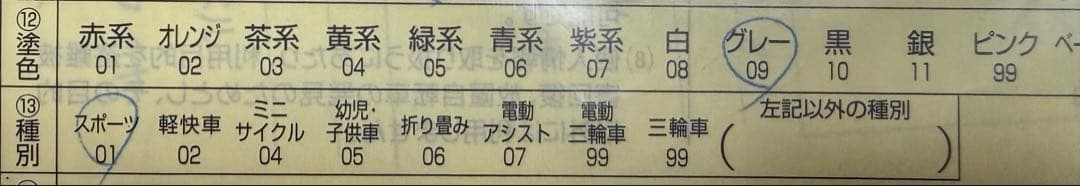 ⑫塗色 赤系 オレンジ 茶系 黄系 緑系 青系 紫系 白 グレー 黒 銀 ピンク ベー
01 02 03 04 05 06 07 08 09 10 11 99
⑬種別 スポーツ 軽快車 ミニサイクル 幼児・子供車 折り畳み 電動アシスト 電動三輪車 三輪車 左記以外の種別
01 02 04 05 06 07 99 99 ( )